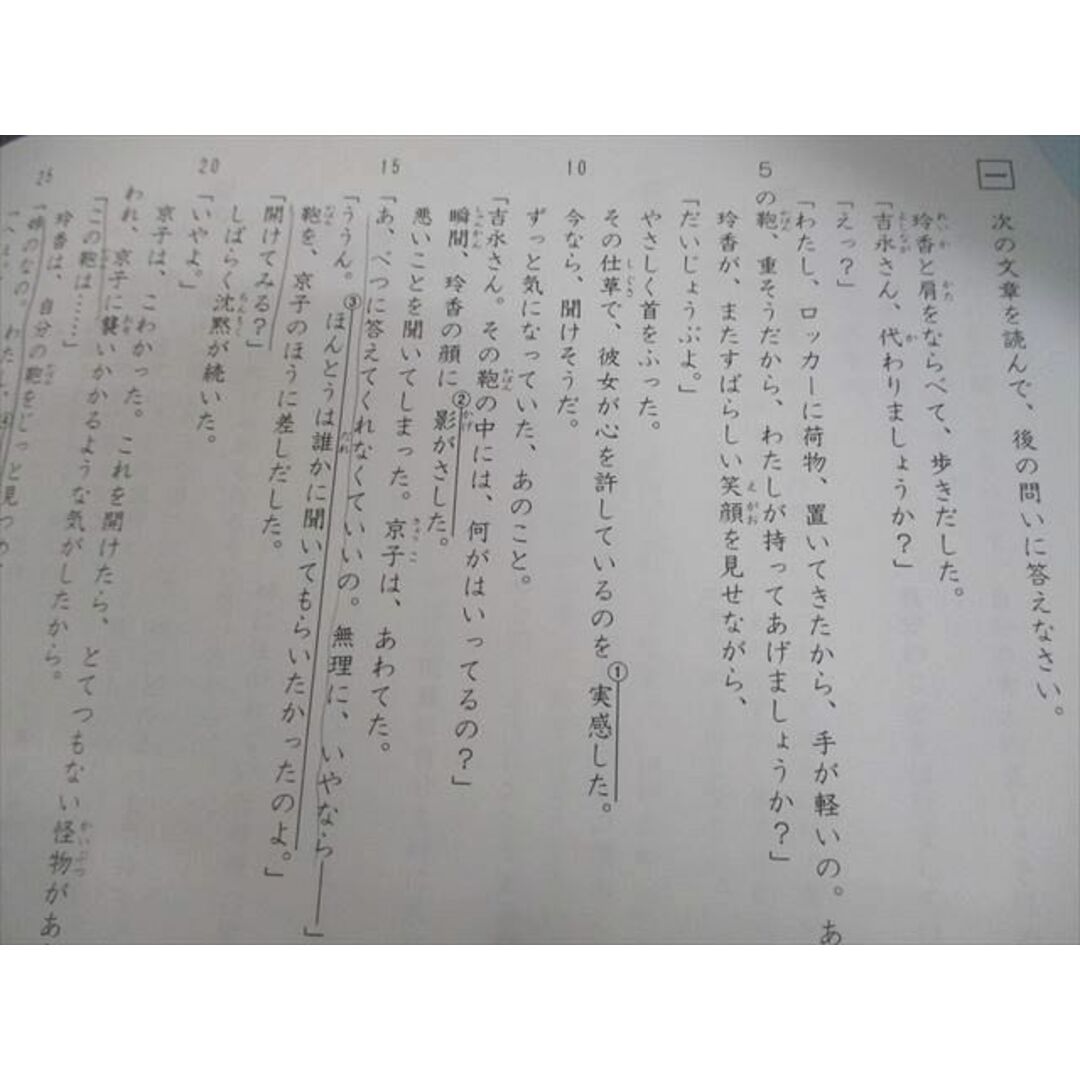 一 次の文章を読んで、後の問いに答えなさい。
玲香と肩をならべて、歩きだした。
「吉永さん、代わりましょうか?」
「えっ?」
「わたし、ロッカーに荷物、置いてきたから、手が軽いの。あ
5 の鞄、重そうだから、わたしが持ってあげましょうか?」
玲香が、またすばらしい笑顔を見せながら、
「だいじょうぶよ。」
やさしく首をふった。
その仕草で、彼女が心を許しているのを①実感した。
10 今なら、聞けそうだ。
ずっと気になっていた、あのこと。
「吉永さん。その鞄の中には、何がはいってるの?」
瞬間、玲香の顔に②影がさした。
悪いことを聞いてしまった。京子は、あわてた。
15 「あ、べつに答えてくれなくていいの。無理に、いやなら——」
「ううん。③ほんとうは誰かに聞いてもらいたかったのよ。」
鞄を、京子のほうに差しだした。
「開けてみる?」
しばらく沈黙が続いた。
20 「いやよ。」
京子は、こわかった。これを開けたら、とてつもない怪物があ
われ、京子に襲いかかるような気がしたから。
「この鞄は……」
玲香は、自分の鞄をじっと見つめ
25 「妹のなの。わたし、④